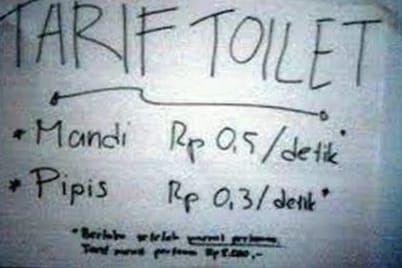 TARIF TOILET
* Mandi Rp 0,5/detik*
* Pipis Rp 0,3/detik*
*Berlaku setelah menit pertama
Tarif menit pertama Rp 5.000,-